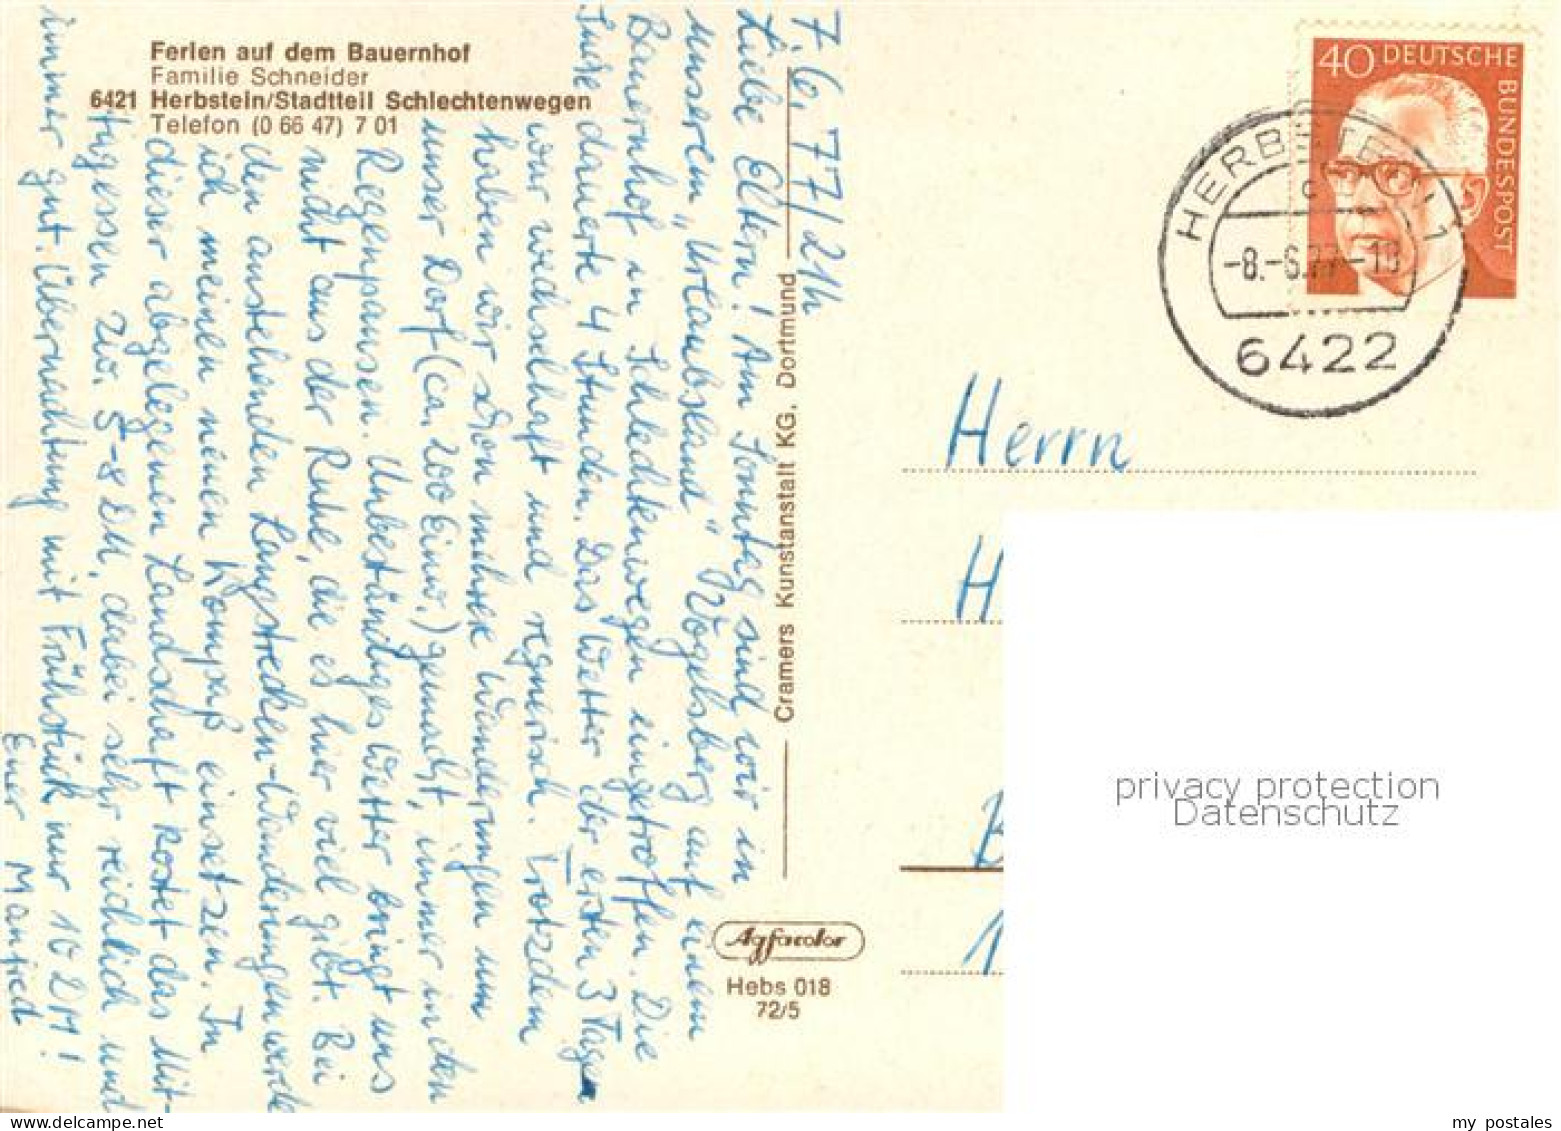 Ferien auf dem Bauernhof
Familie Schneider
6421 Herbstein/Stadtteil Schlechtenwegen
Telefon (0 66 47) 7 01
7. 6. 77/21h
Liebe Eltern! Am Sonntag sind wir in
unserem „Urlaubsland" Vogelsberg auf einem
Bauernhof in Schlechtenwegen eingetroffen. Die
dauerte 4 Stunden. Das Wetter der ersten 3 Tagen
war wechselhaft und regnerisch. Trotzdem
haben wir schon mehrere Wanderungen um
unser Dorf (ca. 200 Einw.) gemacht, immer in den
Regenpausen. Unbeständiges Wetter bringt uns
nicht aus der Ruhe, die es hier viel gibt. Bei
den anstehenden Langstrecken-Wanderungen werde
ich meinen neuen Kompaß einsetzen. In
dieser abgelegenen Landschaft kostet das Mit-
tagessen zw. 5-8 DM, dabei sehr reichlich und
immer gut. Übernachtung mit Frühstück nur 10 DM!
Euer Manfred
Cramers Kunstanstalt KG, Dortmund
Agfacolor
Hebs 018
72/5
40 DEUTSCHE
BUNDESPOST
HERBSTEIN 1
-8.-6.77-19
6422
Herrn
H
1
privacy protection
Datenschutz
www.delcampe.net
my_postales